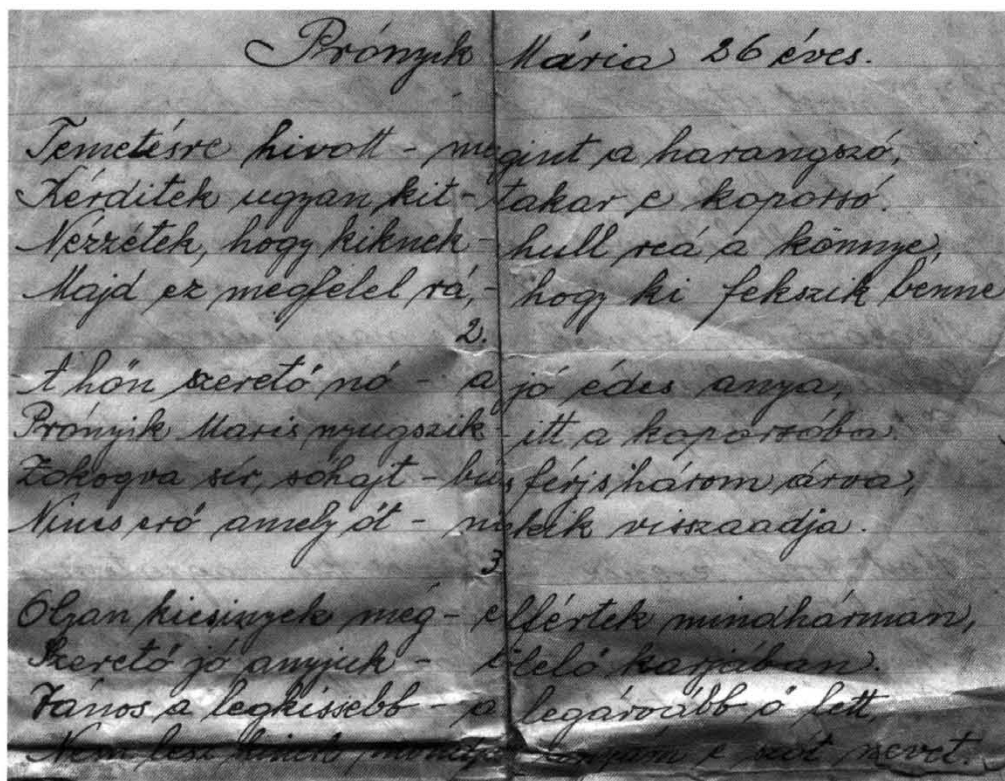 Prónyik Mária 26 éves.
Temetésre hivott - megint a harangszó,
Kérditek ugyan kit - takar e koporsó.
Nézzétek, hogy kiknek - hull reá a könnye,
Majd ez megfelel rá, - hogy ki fekszik benne
2.
A hőn szerető nő - a jó édes anya,
Prónyik Maris nyugszik - itt a koporsóba.
Zokogva sír, sóhajt - bús férj s három árva,
Nincs erő amely őt - nekik visszaadja.
3
Olyan kicsinyek még - elfértek mindhárman,
Szerető jó anyjuk - ölelő karjában.
János a legkissebb - a legárvább ő lett,
Nem lesz kinek mondja anyám e szót nevet.